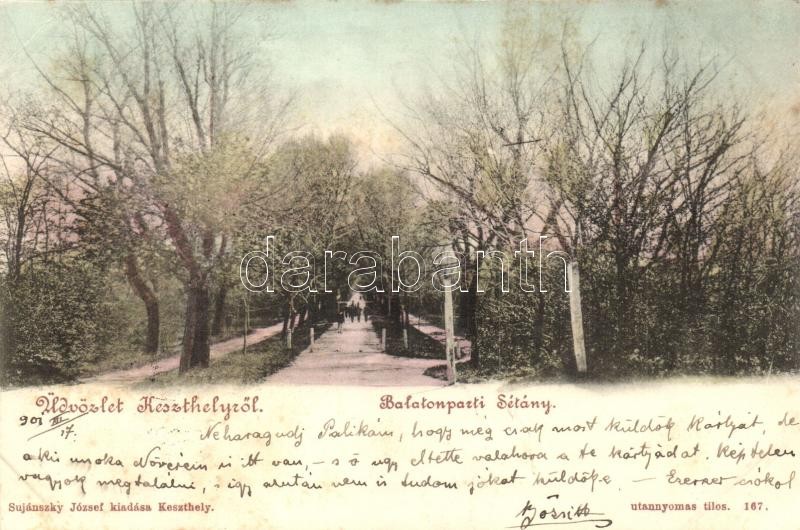 darabanth
Üdvözlet Keszthelyről.
Balatonparti Sétány.
901 III/17.
Neharagudj Palikám, hogy még csak most küldök Kártyát, de
a kis unoka Nővérem is itt van, – s ő ugy eltette valahova a te kártyádat. Képtelen
vagyok megtalálni, s igy azután nem is tudom jókat küldök e. — Ezerszer csókol
Sujánszky József kiadása Keszthely.
utannyomas tilos. 167.